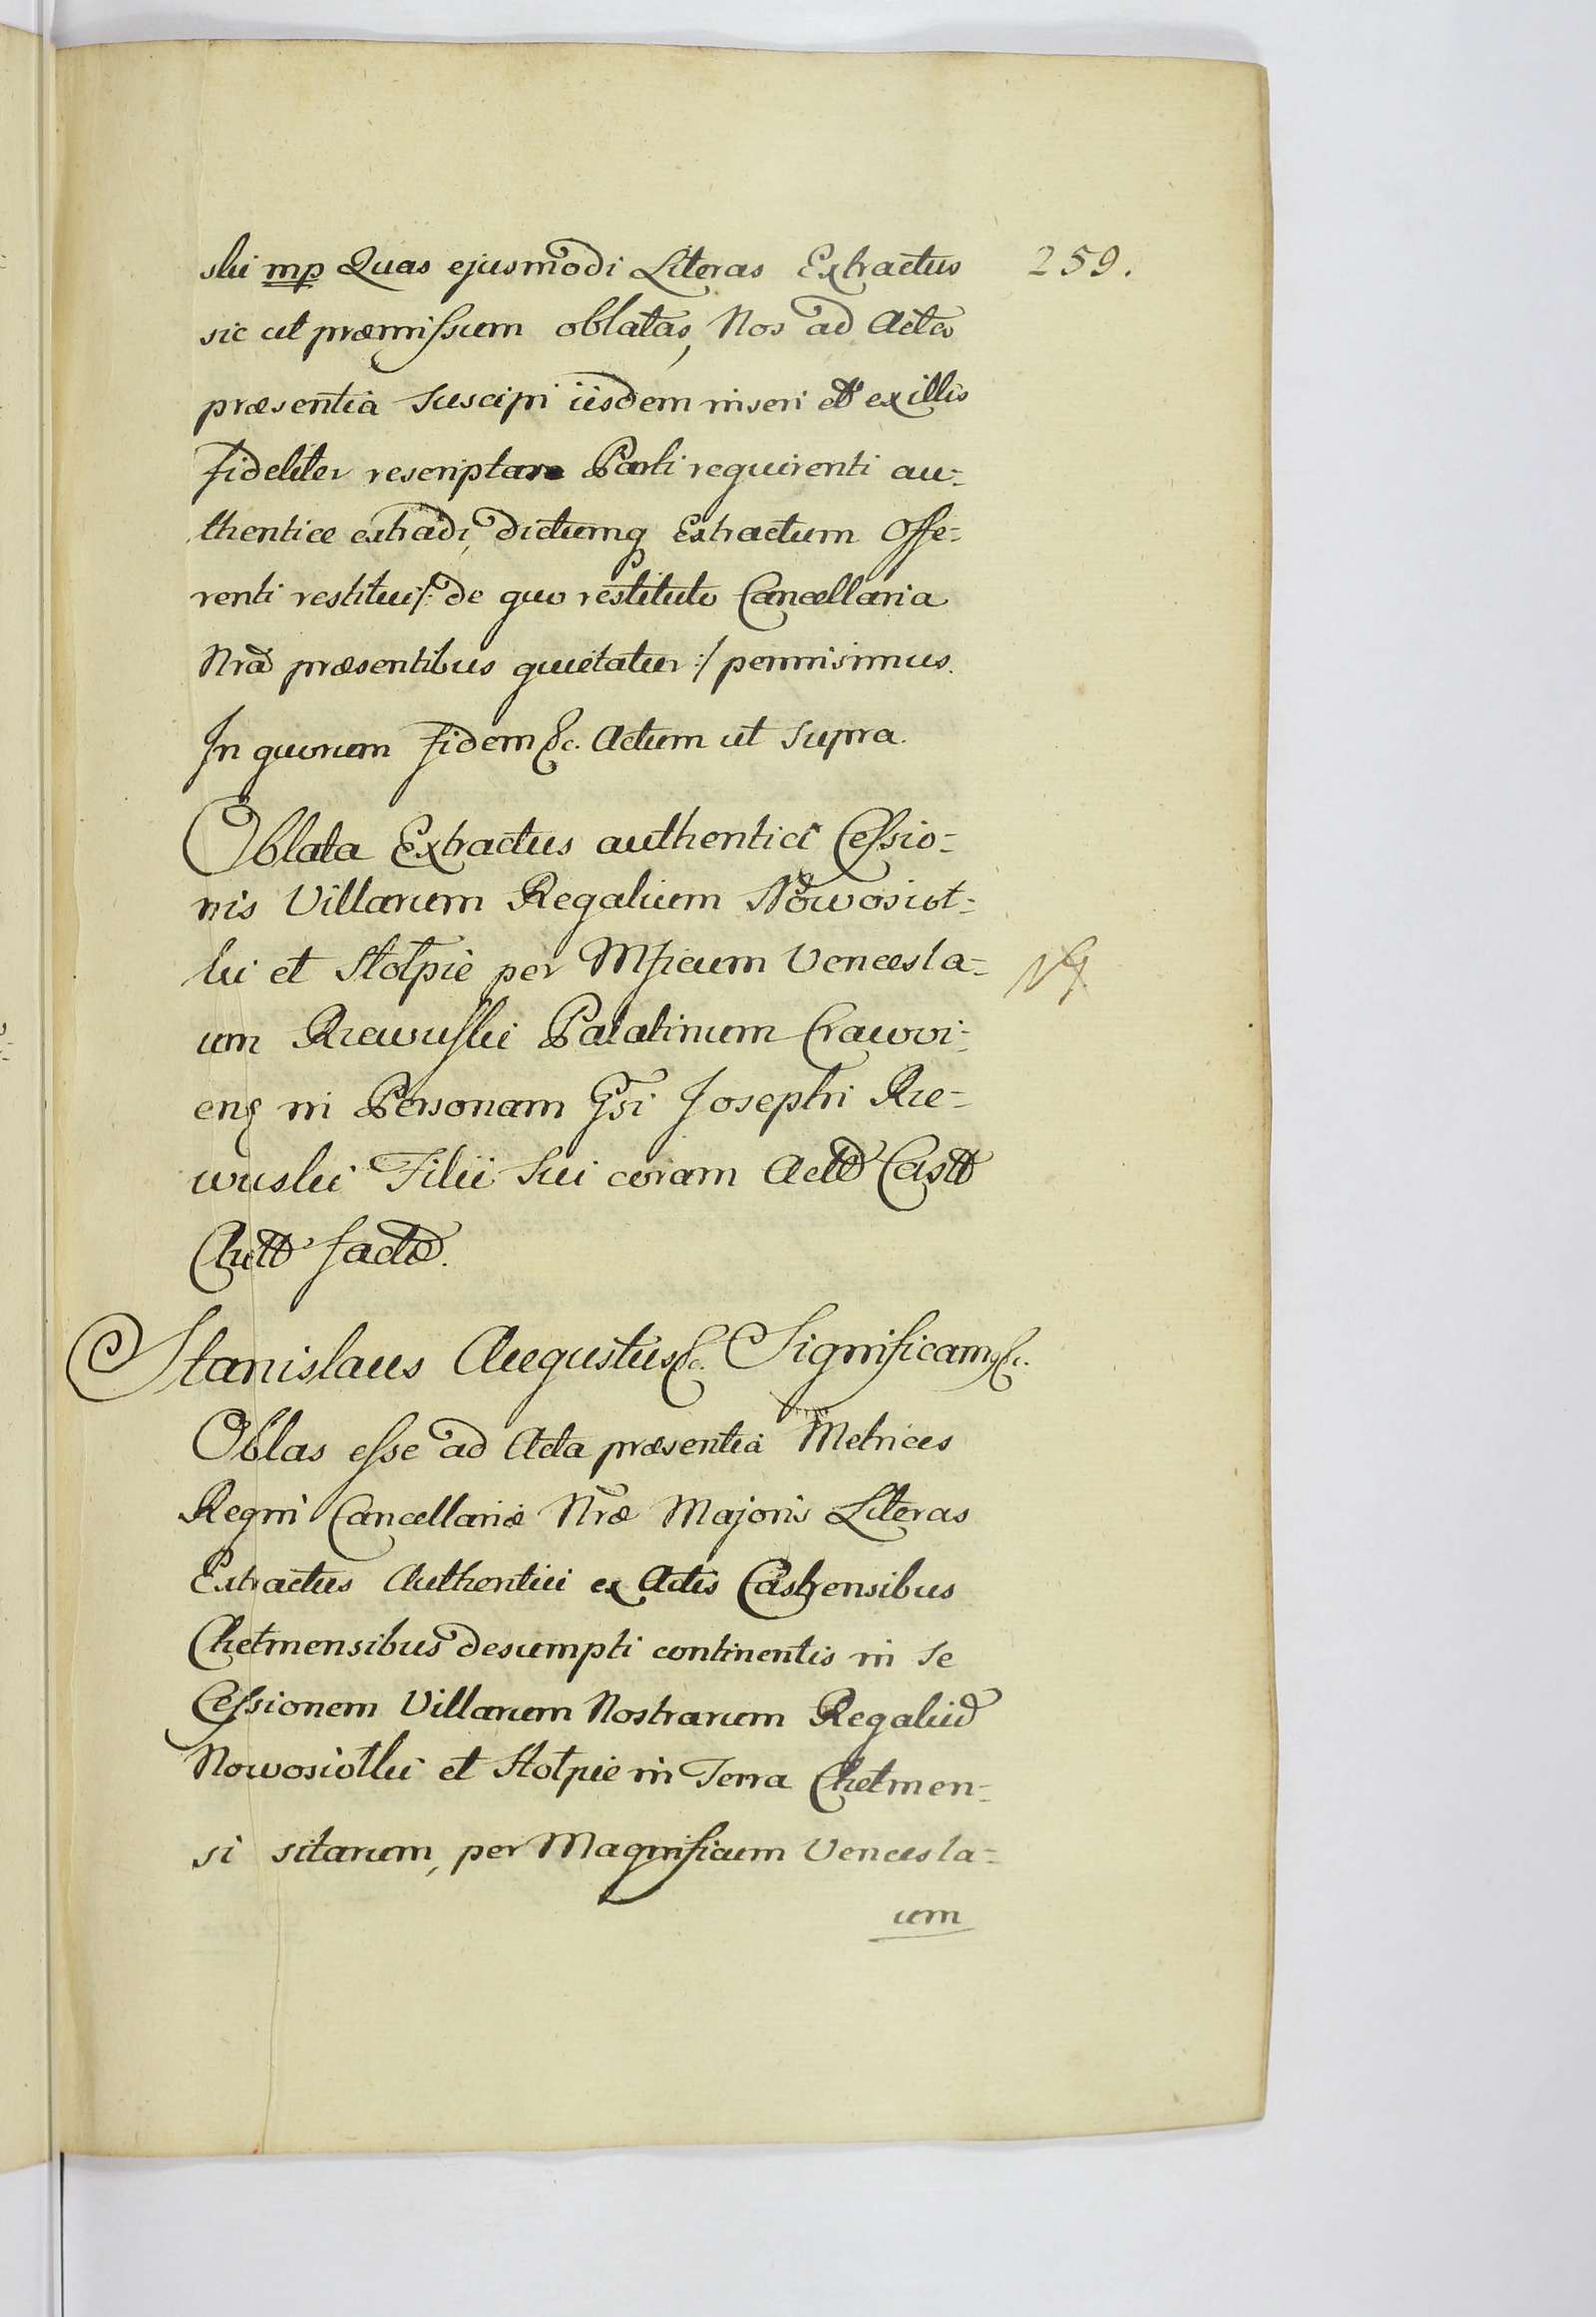 ski mp Quas ejusmodi Literas Extractus
259.
sic ut præmissum oblatas, Nos ad Acta
præsentia suscipi iisdem inseri et ex illis
fideliter rescriptas Parti requirenti au-
thentice extradi, dictumq Extractum Offe-
renti restitui /: de quo restituto Cancellaria
Nra præsentibus quietatur :/ permisimus.
In quorum fidem &c. Actum ut supra.
Oblata Extractus authentici Cessio-
nis Villarum Regalium Nowosioł-
ki et Stołpie per Mficum Vencesla-
um Rzewuski Palatinum Cracovi-
ens in Personam Gsi Josephi Rze-
wuski Filii sui coram Actt Castt
Chett factæ.
Stanislaus Augustus &c. Significams &c.
Oblas esse ad Acta præsentia Metrices
Regni Cancellariæ Nræ Majoris Literas
Extractus Authentici ex Actis Castrensibus
Chełmensibus desumpti continentis in se
Cessionem Villarum Nostrarum Regaliu
Nowosiołki et Stołpie in Terra Chełmen-
si sitarum, per Magnificum Vencesla-
um